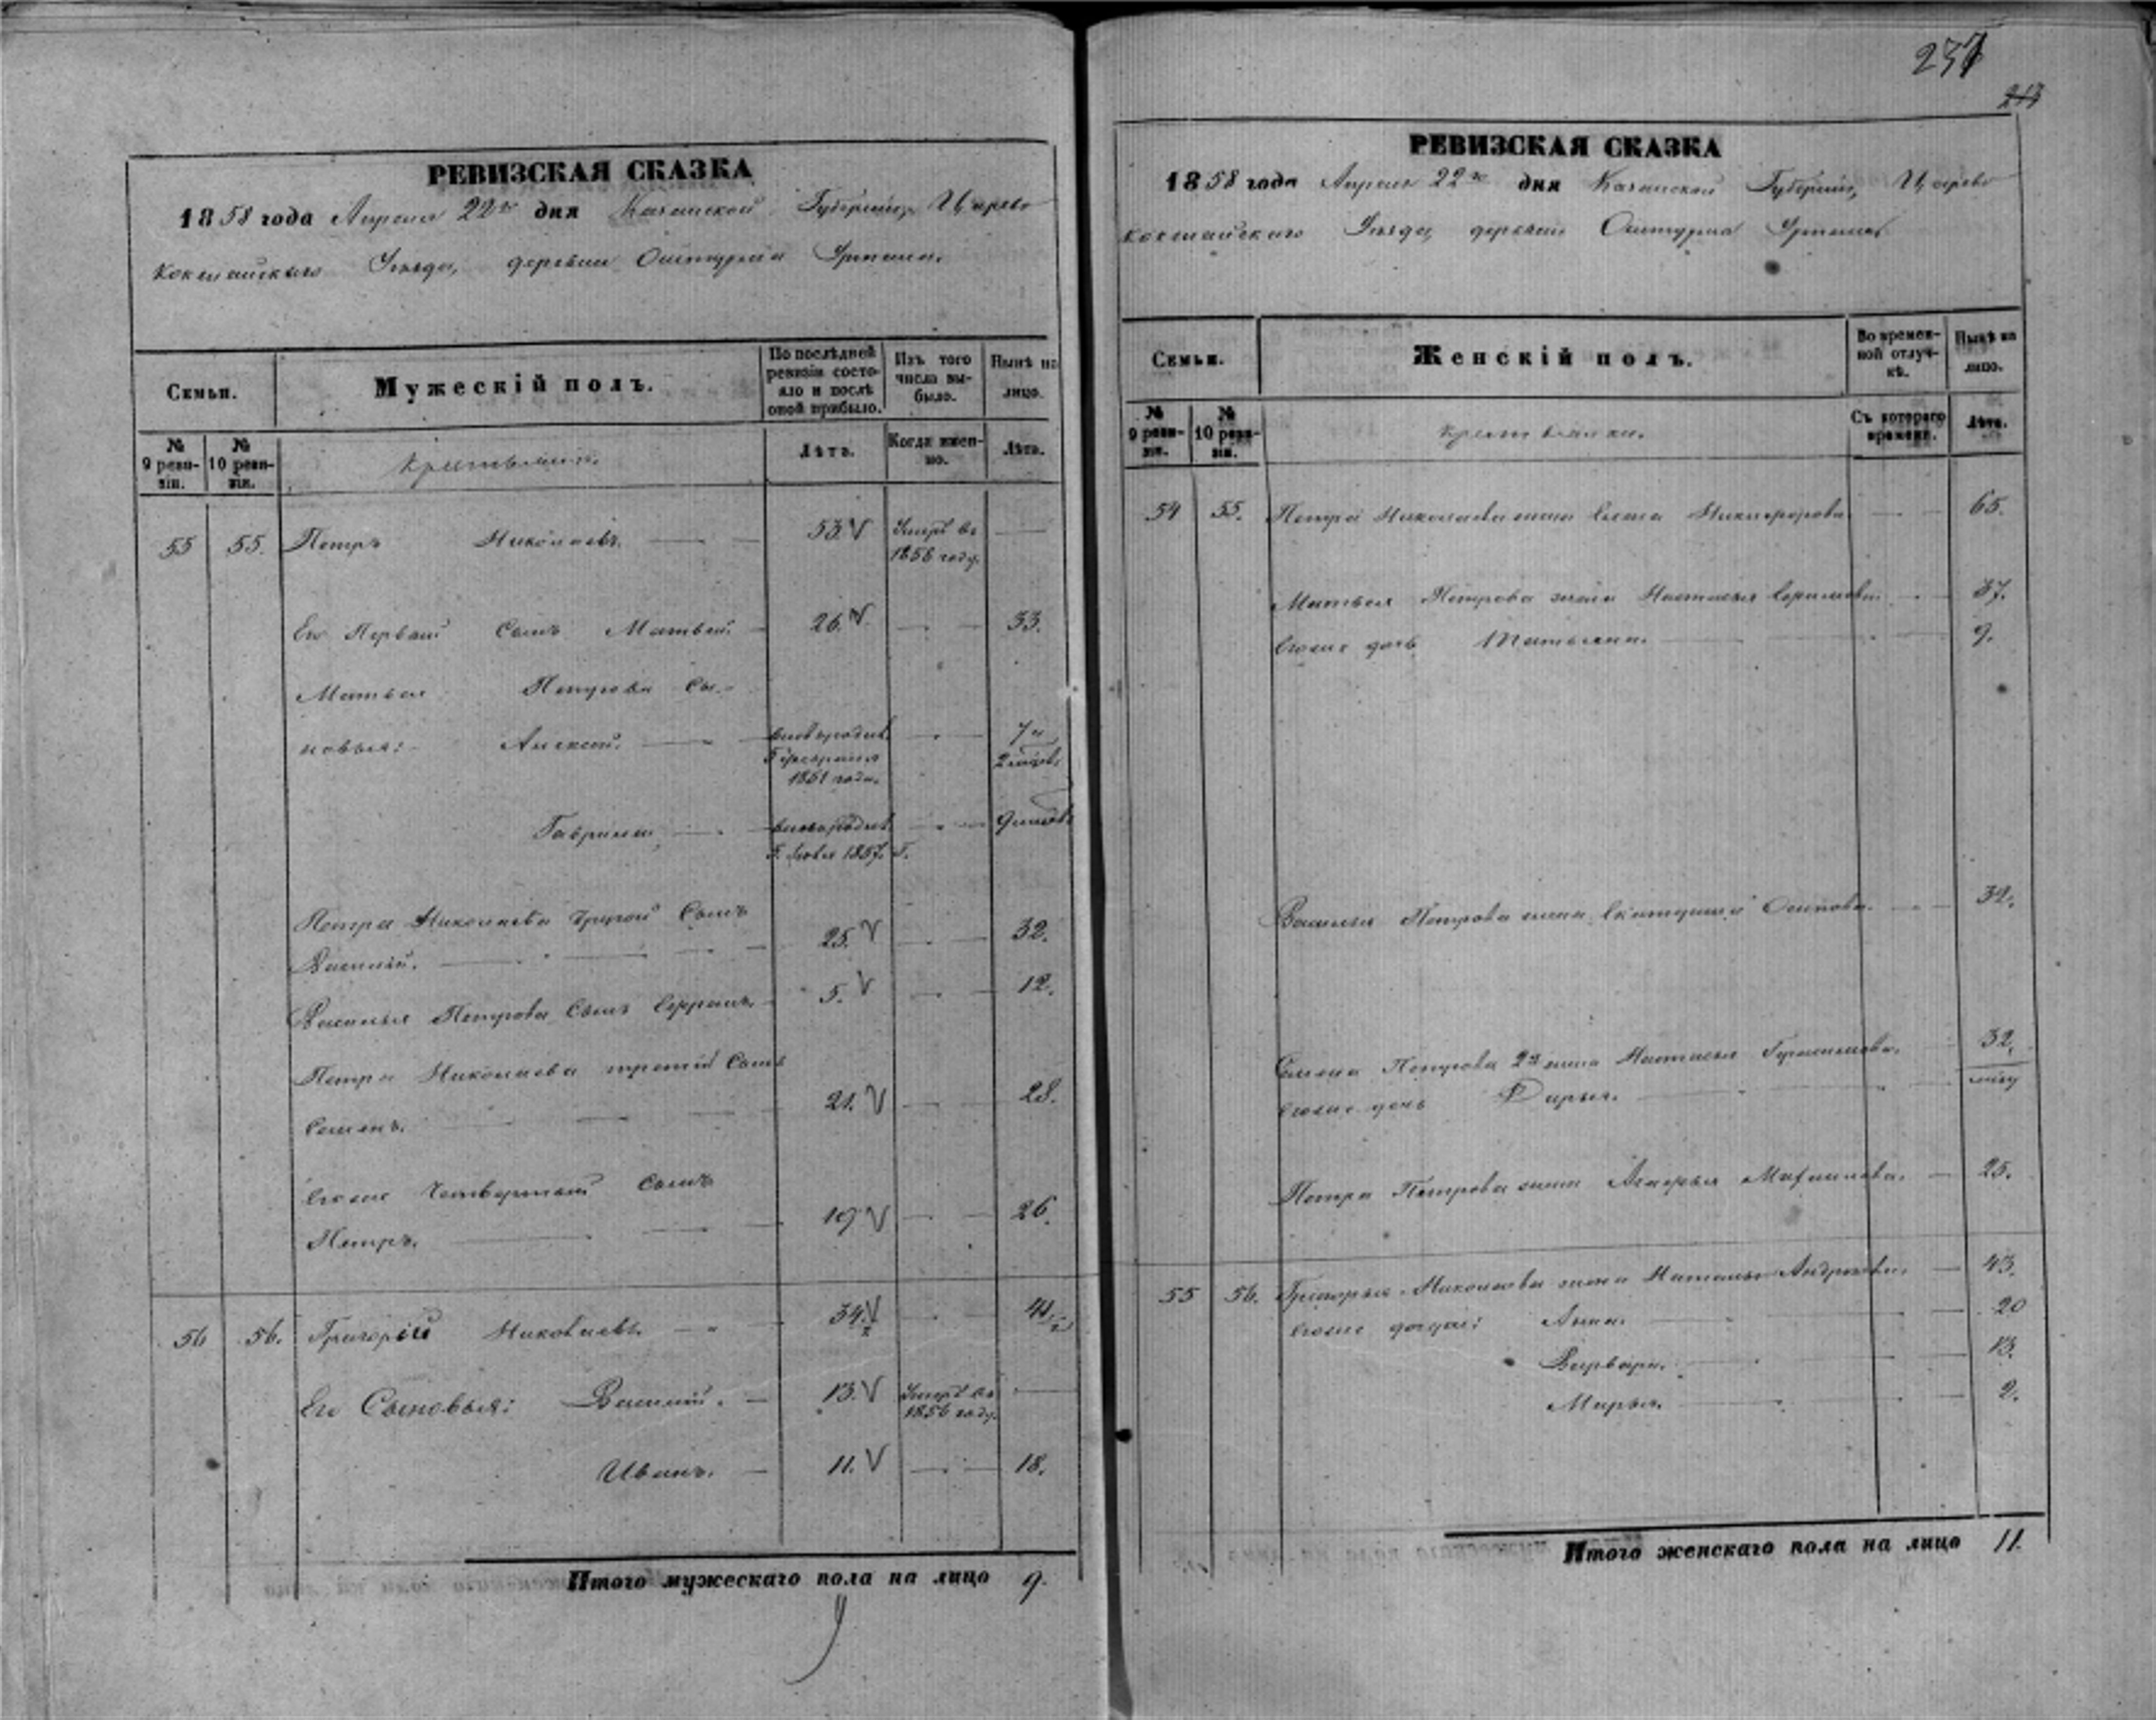 РЕВИЗСКАЯ СКАЗКА
1858 года Апреля 22го дня Казанской Губернiи, Царево
кокшайскаго Уѣзда, деревни
Семьи.
Мужескій полъ.
По послѣдней ревизіи состояло и послѣ оной прибыло.
Изъ того числа выбыло.
Нынѣ на лицо.
№ 9 ревизіи.
№ 10 ревизіи.
Крестьяне.
Лѣта.
Когда именно.
Лѣта.
55 55. Петръ Николаевъ. 53. Умеръ въ
1856 году.
Его Первый Сынъ Матвей. 26. 33.
Матвея Петрова Сы-
новья: Алексей. 7 и
1851 года. 2 мѣсяц.
Гавриилъ
1857. Г.
Петра Николаева другой Сынъ
Василій. 25. 32.
Василья Петрова Сынъ Ефремъ. 5. 12.
Петра Николаева третій Сынъ
Семенъ. 21. 28.
Егоже Четвертый Сынъ
Петръ. 19. 26.
56 56. Григорій Николаевъ. 34. 41
Его Сыновья: Василій. 13. Умеръ въ
1856 году.
Иванъ. 11. 18.
Итого мужескаго пола на лицо 9.
237
213
РЕВИЗСКАЯ СКАЗКА
1858 года Апреля 22го дня Казанской Губернiи, Царево
кокшайскаго Уѣзда, деревни
Семьи.
Женскій полъ.
Во временной отлучкѣ.
Нынѣ на лицо.
№ 9 ревизіи.
№ 10 ревизіи.
Крестьянки.
Съ котораго времени.
Лѣта.
54 55. Петра Николаева жена Никифорова 65.
Матвея Петрова жена Настасья 37.
Егоже дочь Татьяна. 9.
Василья Петрова жена Осипова. 32.
Семена Петрова 2я жена Настасья Герасимова. 32.
Егоже дочь Дарья.
Петра Петрова жена 25.
55 56. Григорья Николаева жена Наталья Андреева. 43.
Егоже дочери: Анна. 20
Варвара. 13.
Марья. 2.
Итого женскаго пола на лицо 11.